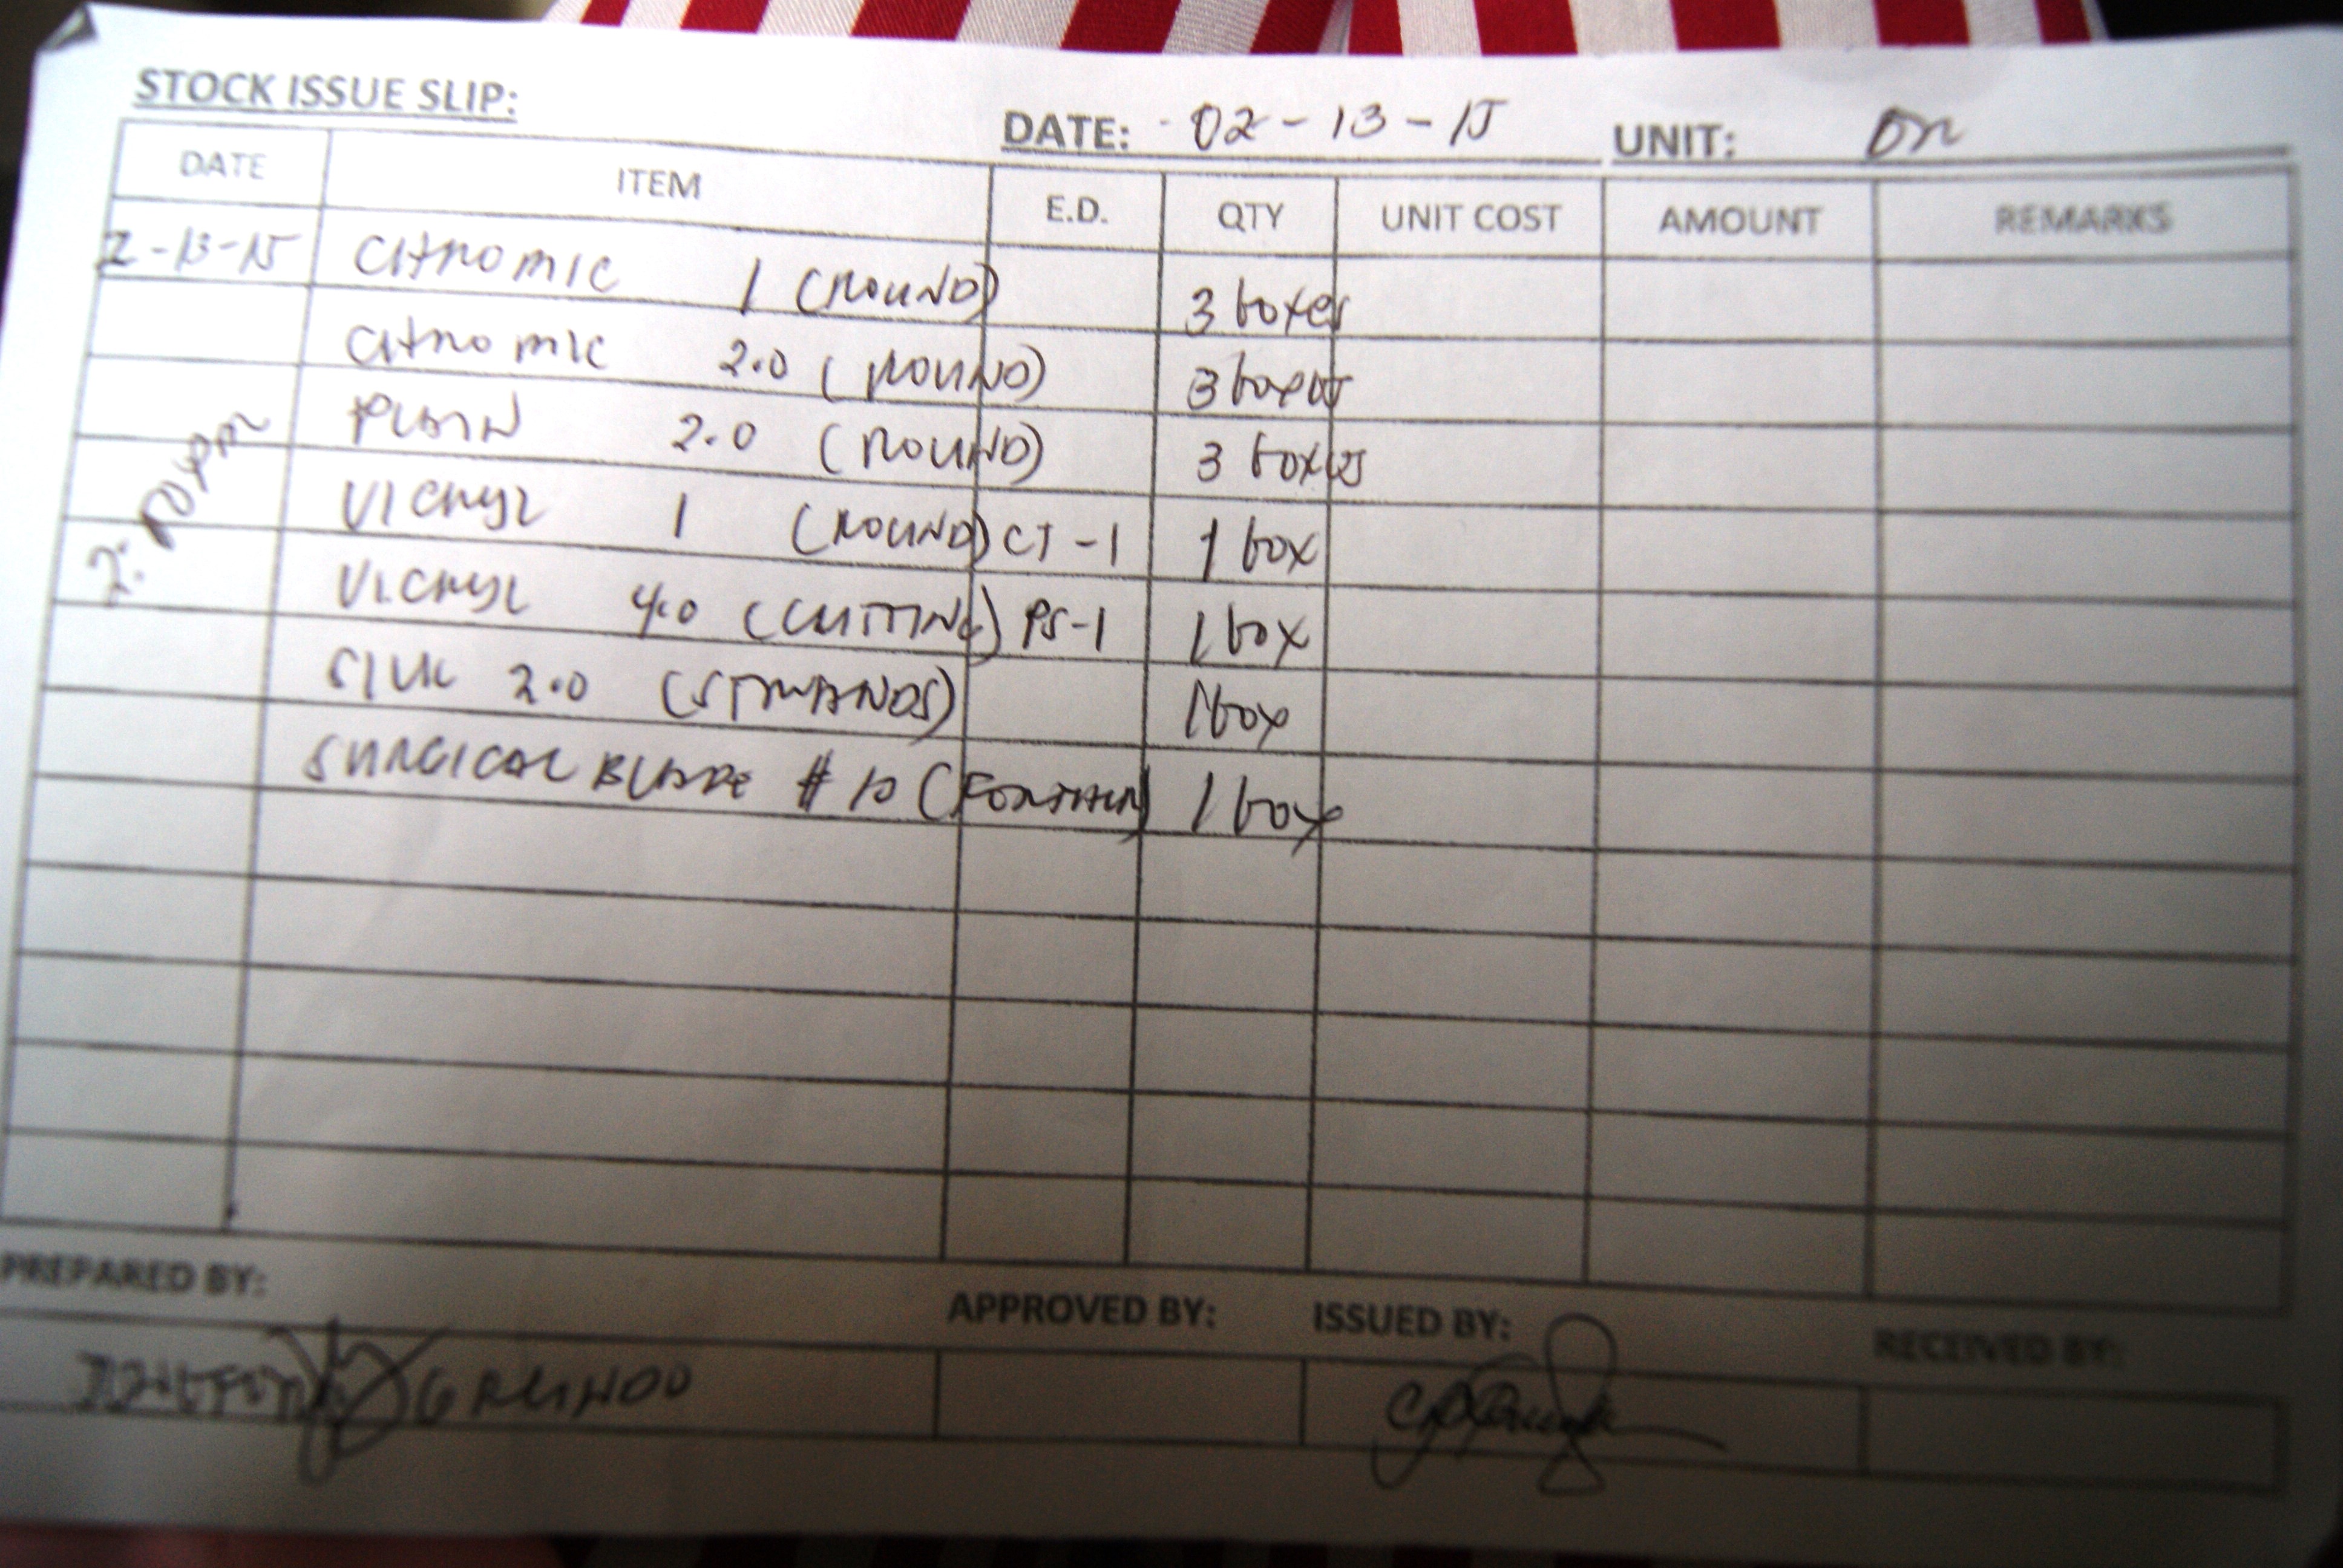 STOCK ISSUE SLIP:
DATE: 02-13-15 UNIT: OR
DATE ITEM E.D. QTY UNIT COST AMOUNT REMARKS
2-13-15 CHROMIC 1 (ROUND) 3 boxes
CHROMIC 2.0 (ROUND) 3 boxes
PLAIN 2.0 (ROUND) 3 boxes
VICRYL 1 (ROUND) CT-1 1 box
VICRYL 4.0 (CUTTING) PS-1 1 box
SILK 2.0 (STRANDS) 1 box
SURGICAL BLADE # 10 1 box
PREPARED BY: APPROVED BY: ISSUED BY: RECEIVED BY: